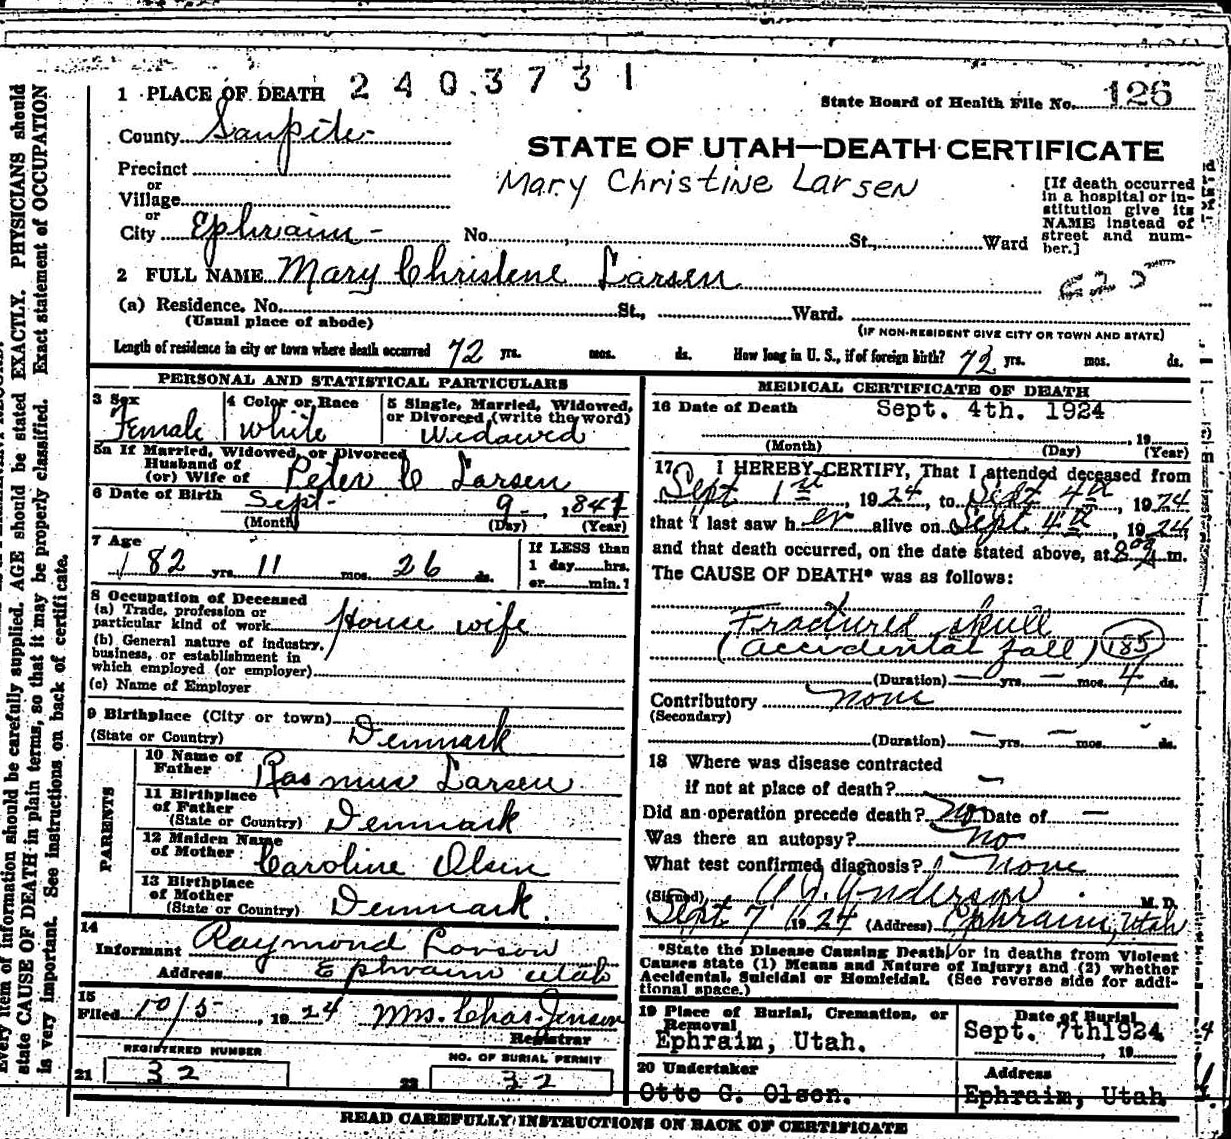 2403731
1 PLACE OF DEATH
State Board of Health File No. 126
County Sanpete
STATE OF UTAH—DEATH CERTIFICATE
Precinct
Mary Christine Larsen
or
Village
or
City Ephraim No. St., Ward
[If death occurred
in a hospital or in-
stitution give its
NAME instead of
street and num-
ber.]
2 FULL NAME Mary Christene Larsen
(a) Residence, No. St., Ward.
(Usual place of abode)
(IF NON-RESIDENT GIVE CITY OR TOWN AND STATE)
Length of residence in city or town where death occurred 72 yrs. mos. ds. How long in U. S., if of foreign birth? 72 yrs. mos. ds.
PERSONAL AND STATISTICAL PARTICULARS
3 Sex
Female
4 Color or Race
White
5 Single, Married, Widowed,
or Divorced (write the word)
Widowed
5a If Married, Widowed, or Divorced
Husband of
(or) Wife of Peter C Larsen
6 Date of Birth Sept 9 1841
(Month) (Day) (Year)
7 Age
82 yrs. 11 mos. 26 ds.
If LESS than
1 day hrs.
or min.
8 Occupation of Deceased
(a) Trade, profession or
particular kind of work House wife
(b) General nature of industry,
business, or establishment in
which employed (or employer)
(c) Name of Employer
9 Birthplace (City or town)
(State or Country) Denmark
PARENTS
10 Name of
Father Rasmus Larsen
11 Birthplace
of Father
(State or Country) Denmark
12 Maiden Name
of Mother Caroline Olsen
13 Birthplace
of Mother
(State or Country) Denmark.
14
Informant Raymond Larson
Address Ephraim Utah
15
Filed 10/5, 1924 Mrs. Chas. Jenson
Registrar
REGISTERED NUMBER
21 32
NO. OF BURIAL PERMIT
22 32
MEDICAL CERTIFICATE OF DEATH
16 Date of Death Sept. 4th. 1924
, 19
(Month) (Day) (Year)
17 I HEREBY CERTIFY, That I attended deceased from
Sept 1st, 1924, to Sept 4th, 1924
that I last saw her alive on Sept 4th, 1924,
and that death occurred, on the date stated above, at 8 00 A m.
The CAUSE OF DEATH* was as follows:
Fractured skull
(accidental fall) 185
(Duration) — yrs. — mos. 4 ds.
Contributory none
(Secondary)
(Duration) — yrs. — mos. - ds.
18 Where was disease contracted
if not at place of death? —
Did an operation precede death? no Date of —
Was there an autopsy? no
What test confirmed diagnosis? none
(Signed) Anderson M. D.
Sept 7 1924 (Address) Ephraim, Utah
*State the Disease Causing Death, or in deaths from Violent
Causes state (1) Means and Nature of Injury; and (2) whether
Accidental, Suicidal or Homicidal. (See reverse side for addi-
tional space.)
19 Place of Burial, Cremation, or
Removal
Ephraim, Utah.
Date of Burial
Sept. 7th1924
, 19
20 Undertaker
Otto G. Olson.
Address
Ephraim, Utah
READ CAREFULLY INSTRUCTIONS ON BACK OF CERTIFICATE
Every item of information should be carefully supplied. AGE should be stated EXACTLY. PHYSICIANS should
state CAUSE OF DEATH in plain terms, so that it may be properly classified. Exact statement of OCCUPATION
is very important. See instructions on back of certificate.